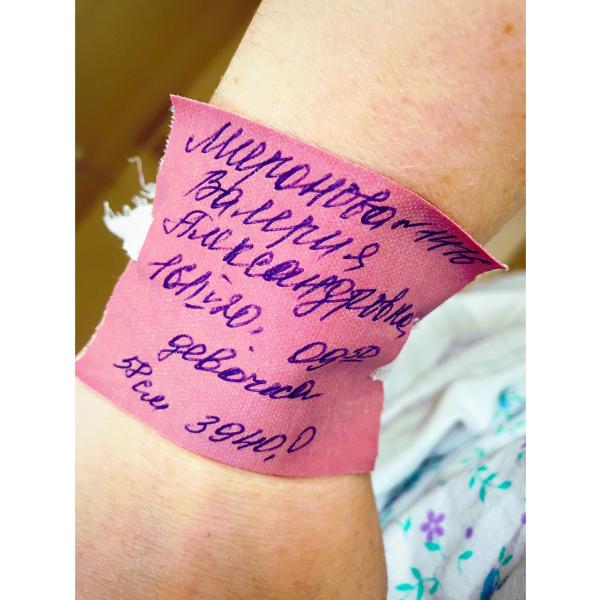 Миронова N 1416
Валерия
Александровна
16/IV-20, 09 50
девочка
58 см, 3940,0